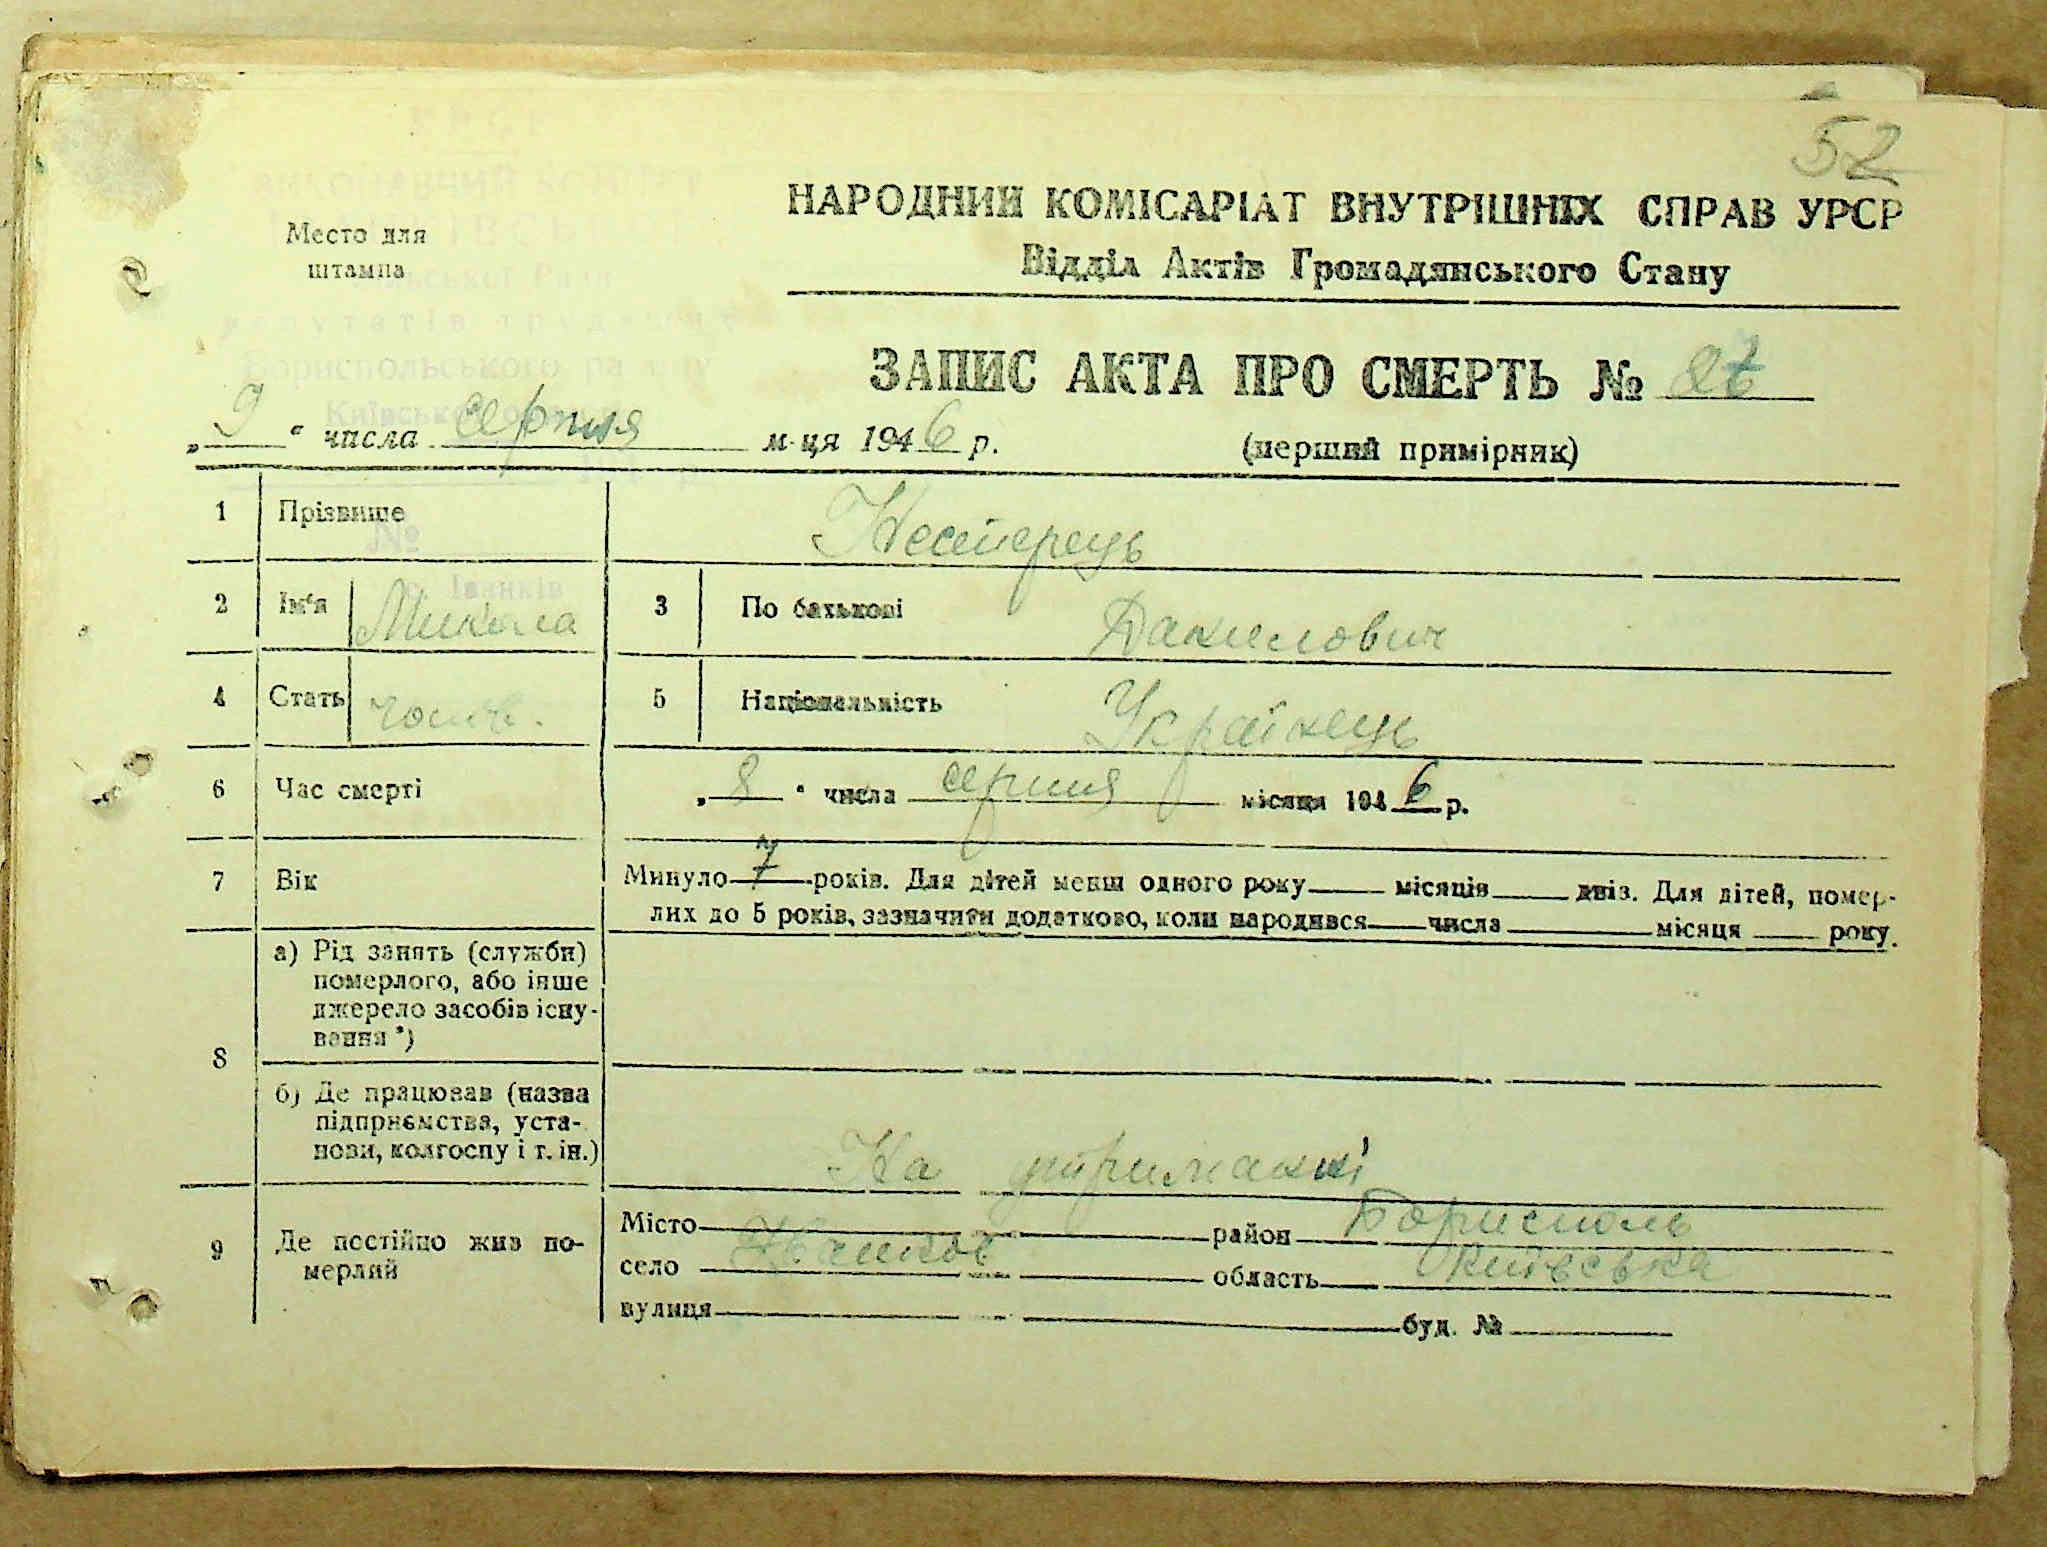 52
НАРОДНИЙ КОМІСАРІАТ ВНУТРІШНІХ СПРАВ УРСР
Место для штампа
Відділ Актів Громадянського Стану
УРСР
ВИКОНАВЧИЙ КОМІТЕТ
ІВАНКІВСЬКОЇ
сільської Ради
депутатів трудящих
Бориспольського району
Київської області
№
с. Іванків
ЗАПИС АКТА ПРО СМЕРТЬ №
„9“ числа серпня м-ця 1946 р. (перший примірник)
1 Прізвище Нестерець
2 Ім'я Микола 3 По батькові Данилович
4 Стать чолов. 5 Національність Українець
6 Час смерті „8“ числа серпня місяця 1946 р.
7 Вік Минуло 7 років. Для дітей менш одного року місяців днів. Для дітей, помер-
лих до 5 років, зазначити додатково, коли народився числа місяця року.
8 а) Рід занять (служби)
померлого, або інше
джерело засобів існу-
вання *)
б) Де працював (назва
підприємства, уста-
нови, колгоспу і т. ін.) На утриманні
9 Де постійно жив по-
мерлий
Місто район Бориспель
село Іванков область Київська
вулиця буд. №